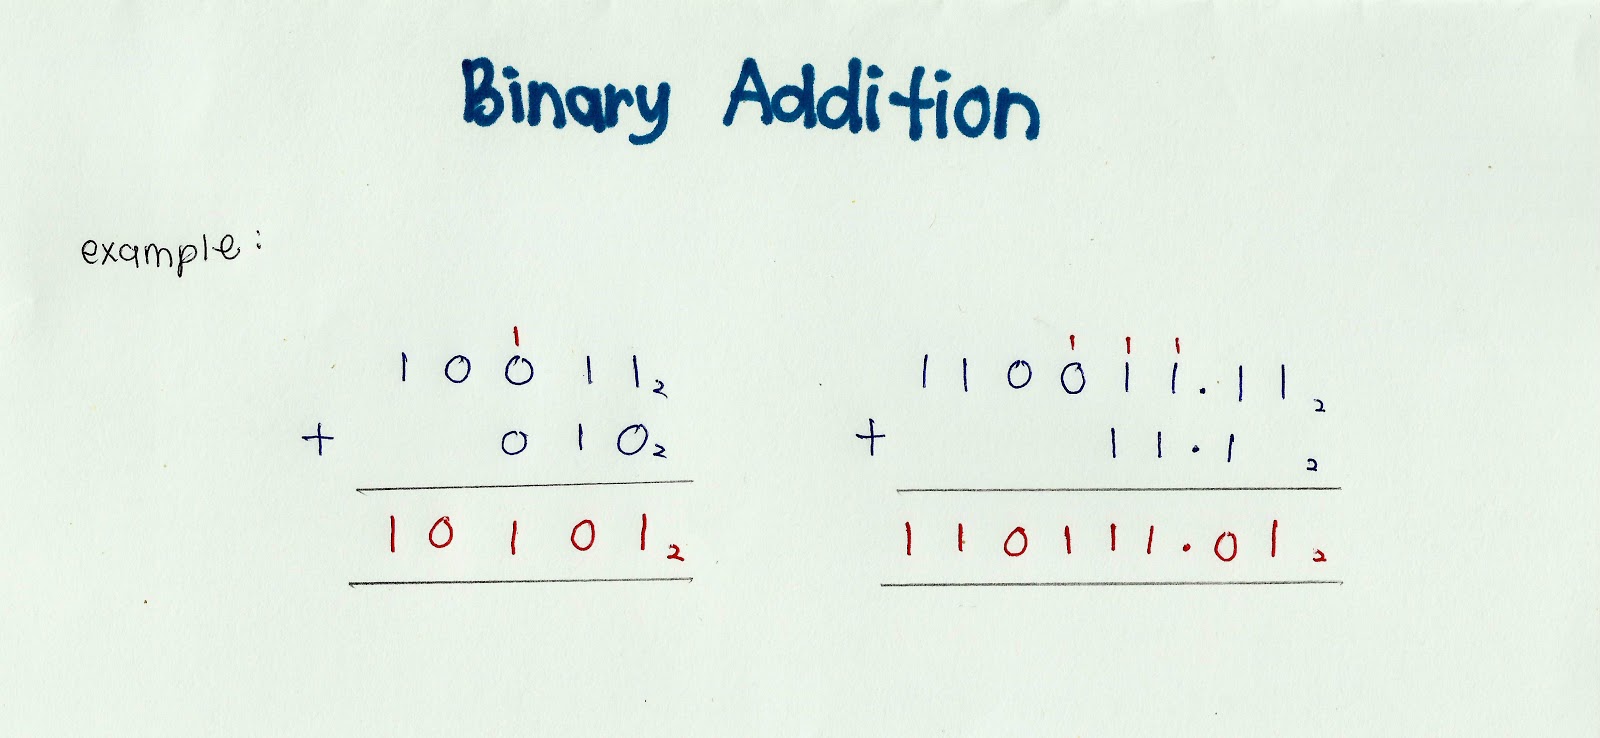 Binary Addition
example:
1 1 1 1
1 0 0 1 1₂ 1 1 0 0 1 1 . 1 1 ₂
+ 0 1 0₂ + 1 1 . 1 ₂
1 0 1 0 1₂ 1 1 0 1 1 1 . 0 1 ₂